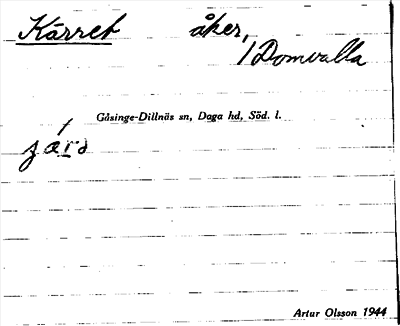 Kärret åker,
/Domvalla
Gåsinge-Dillnäs sn, Daga hd, Söd. l.
Artur Olsson 1944